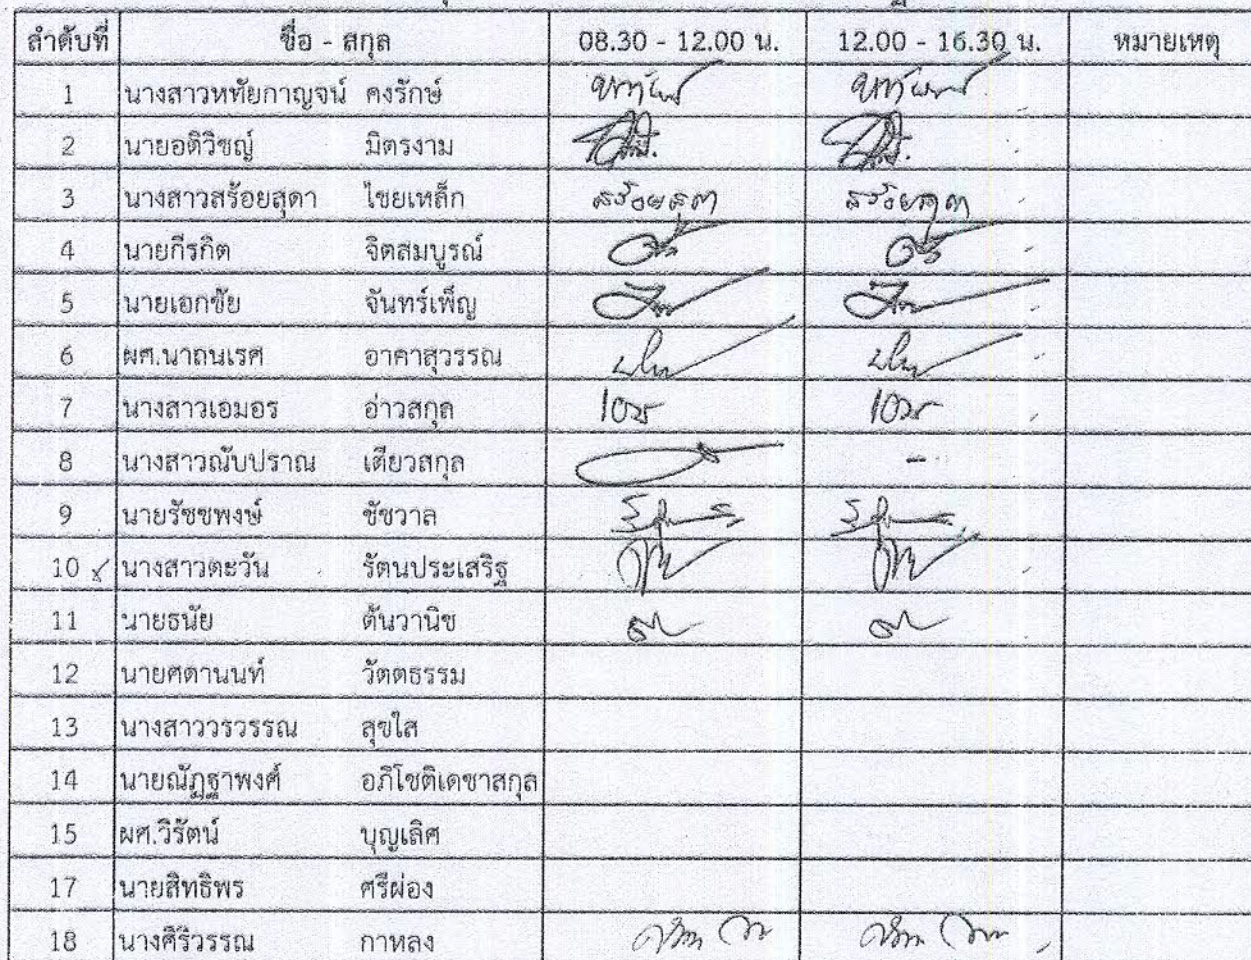 ลำดับที่ ชื่อ - สกุล 08.30 - 12.00 น. 12.00 - 16.30 น. หมายเหตุ
1 นางสาวหทัยกาญจน์ คงรักษ์
2 นายอติวิชญ์ มิตรงาม
3 นางสาวสร้อยสุดา ไชยเหล็ก สร้อยสุดา สร้อยสุดา
4 นายกีรกิต จิตสมบูรณ์
5 นายเอกชัย จันทร์เพ็ญ
6 ผศ.นาถนเรศ อาคาสุวรรณ
7 นางสาวเอมอร อ่าวสกุล
8 นางสาวณับปราณ เตียวสกุล -
9 นายรัชชพงษ์ ชัชวาล
10 นางสาวตะวัน รัตนประเสริฐ
11 นายธนัย ตันวานิช
12 นายศตานนท์ วัตตธรรม
13 นางสาววรวรรณ สุขใส
14 นายณัฏฐาพงศ์ อภิโชติเดชาสกุล
15 ผศ.วิรัตน์ บุญเลิศ
17 นายสิทธิพร ศรีผ่อง
18 นางศิริวรรณ กาหลง